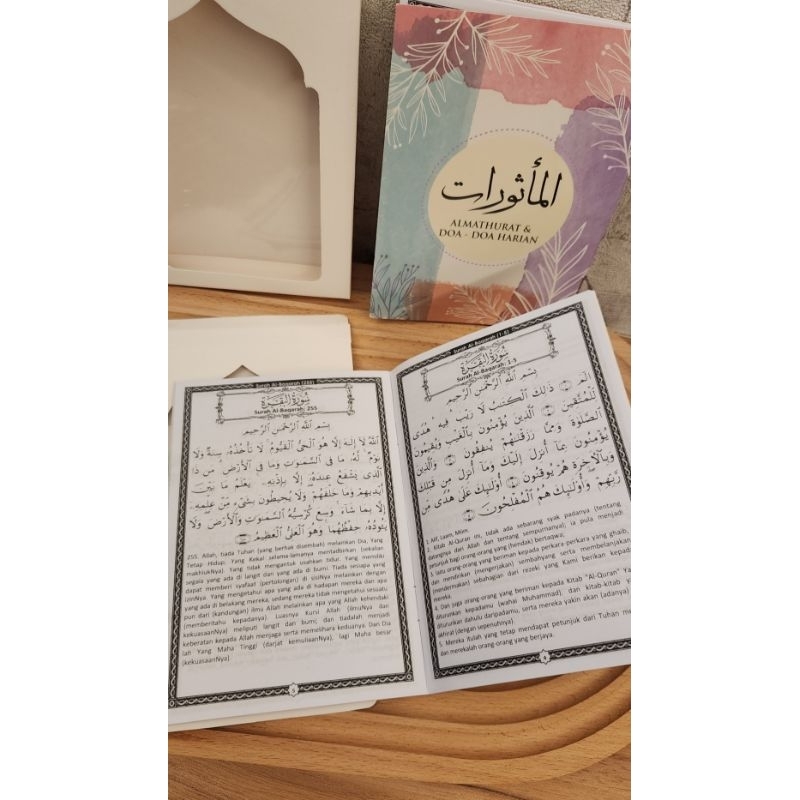 المأثورات
ALMATHURAT &
DOA - DOA HARIAN
Surah Al Baqarah (1-5)
سُورَةُ البَقَرَة
Surah Al-Baqarah: 1-5
بِسْمِ اللَّهِ الرَّحْمَٰنِ الرَّحِيمِ
الٓمٓ ﴿١﴾ ذَٰلِكَ الْكِتَٰبُ لَا رَيْبَ فِيهِ هُدًى
لِّلْمُتَّقِينَ ﴿٢﴾ الَّذِينَ يُؤْمِنُونَ بِالْغَيْبِ وَيُقِيمُونَ
الصَّلَوٰةَ وَمِمَّا رَزَقْنَٰهُمْ يُنفِقُونَ ﴿٣﴾ وَالَّذِينَ
يُؤْمِنُونَ بِمَا أُنزِلَ إِلَيْكَ وَمَا أُنزِلَ مِن قَبْلِكَ
وَبِالْآخِرَةِ هُمْ يُوقِنُونَ ﴿٤﴾ أُولَٰئِكَ عَلَىٰ هُدًى مِّن
رَّبِّهِمْ وَأُولَٰئِكَ هُمُ الْمُفْلِحُونَ ﴿٥﴾
1. Alif, Laam, Miim.
2. Kitab Al-Quran ini, tidak ada sebarang syak padanya (tentang
datangnya dari Allah dan tentang sempurnanya); ia pula menjadi
petunjuk bagi orang-orang yang (hendak) bertaqwa;
3. Iaitu orang-orang yang beriman kepada perkara-perkara yang ghaib,
dan mendirikan (mengerjakan) sembahyang serta membelanjakan
(mendermakan) sebahagian dari rezeki yang Kami berikan kepada
4. Dan juga orang-orang yang beriman kepada Kitab "Al-Quran" Ya
diturunkan kepadamu (wahai Muhammad), dan kitab-kitab
diturunkan dahulu daripadamu, serta mereka yakin akan (adanya)
akhirat (dengan sepenuhnya).
5. Mereka itulah yang tetap mendapat petunjuk dari Tuhan me
dan merekalah orang-orang yang berjaya.
4
Surah Al Baqarah (255)
سُورَةُ البَقَرَة
Surah Al-Baqarah: 255
بِسْمِ اللَّهِ الرَّحْمَٰنِ الرَّحِيمِ
اللَّهُ لَا إِلَٰهَ إِلَّا هُوَ الْحَيُّ الْقَيُّومُ لَا تَأْخُذُهُ سِنَةٌ وَلَا
نَوْمٌ لَّهُ مَا فِي السَّمَٰوَٰتِ وَمَا فِي الْأَرْضِ مَن ذَا
الَّذِي يَشْفَعُ عِندَهُ إِلَّا بِإِذْنِهِ يَعْلَمُ مَا بَيْنَ
أَيْدِيهِمْ وَمَا خَلْفَهُمْ وَلَا يُحِيطُونَ بِشَيْءٍ مِّنْ عِلْمِهِ
إِلَّا بِمَا شَاءَ وَسِعَ كُرْسِيُّهُ السَّمَٰوَٰتِ وَالْأَرْضَ وَلَا
يَئُودُهُ حِفْظُهُمَا وَهُوَ الْعَلِيُّ الْعَظِيمُ
255. Allah, tiada Tuhan (yang berhak disembah) melainkan Dia, Yang
Tetap Hidup, Yang Kekal selama-lamanya mentadbirkan (sekalian
makhlukNya). Yang tidak mengantuk usahkan tidur. Yang memiliki
segala yang ada di langit dan yang ada di bumi. Tiada sesiapa yang
dapat memberi syafaat (pertolongan) di sisiNya melainkan dengan
izinNya. Yang mengetahui apa yang ada di hadapan mereka dan apa
yang ada di belakang mereka, sedang mereka tidak mengetahui sesuatu
pun dari (kandungan) ilmu Allah melainkan apa yang Allah kehendaki
(memberitahu kepadanya). Luasnya Kursi Allah (ilmuNya dan
kekuasaanNya) meliputi langit dan bumi; dan tiadalah menjadi
keberatan kepada Allah menjaga serta memelihara keduanya. Dan Dia
lah Yang Maha Tinggi (darjat kemuliaanNya), lagi Maha besar
(kekuasaanNya)
5